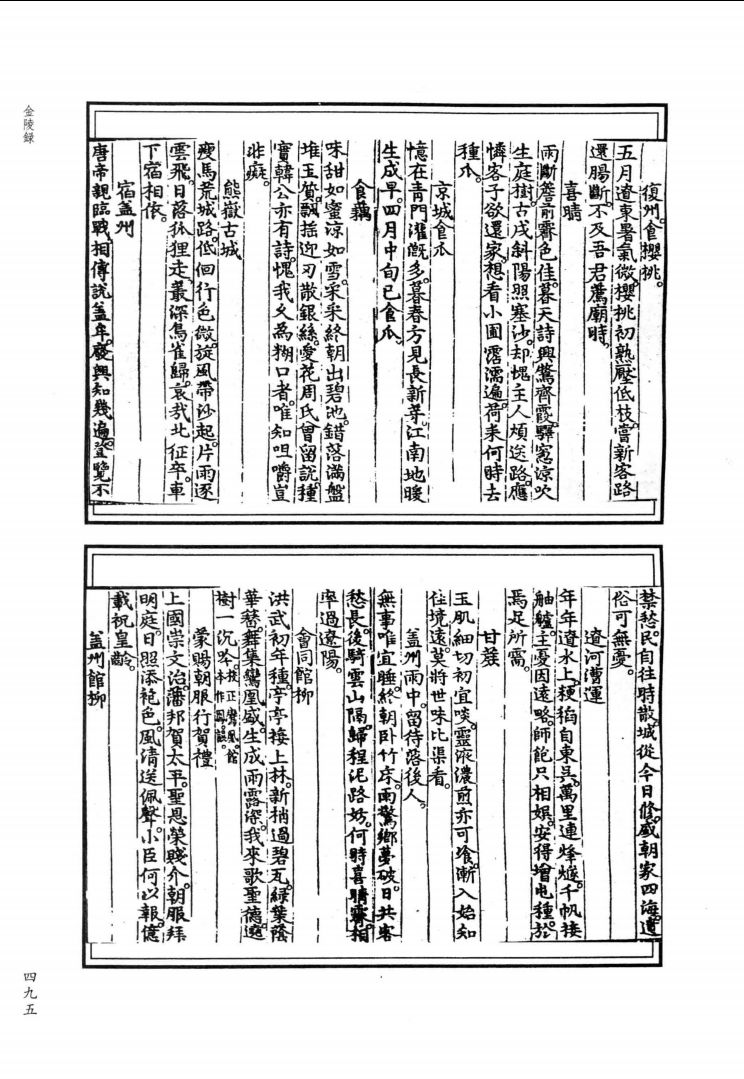 金陵録
復州食櫻桃。
五月遼東暑氣微。櫻桃初熟壓低枝。嘗新客路
還腸斷。不及吾君薦廟時。
喜晴
雨斷簷前霽色佳。暮天詩興驚齊霞。驛窓涼吹
生庭樹。古戍斜陽照塞沙。却愧主人頻送路。應
憐客子欲還家。想看小圃霑濡遍。荷耒何時去
種瓜。
京城食瓜
憶在青門灌溉多。暮春方見長新芽。江南地暖
生成早。四月中旬已食瓜。
食藕
味甜如蜜涼如雪。采采終朝出碧池。錯落滿盤
堆玉質。飄搖迎刃散銀絲。愛花周氏曾留說。種
實韓公亦有詩。愧我久為糊口者。唯知咀嚼豈
非癡。
熊嶽古城
瘦馬荒城路。低佪行色微。旋風帶沙起。片雨逐
雲飛。日落狐狸走。叢深鳥雀歸。哀我北征卒。車
下宿相依。
宿盖州
唐帝親臨戰。相傳說盖牟。廢興知幾遍。登覽不
禁愁。民自往時散。城從今日修。盛朝家四海。遺
俗可無憂。
遼河漕運
年年遼水上。粳稻自東吳。萬里連烽燧。千帆接
舳艫。主憂因遠略。師飽只相娛。安得增屯種。於
焉足所需。
甘蔗
玉肌細切初宜啖。靈液濃煎亦可飡。漸入始知
佳境遠。莫將世味比渠看。
盖州雨中。留待落後人。
無事唯宜睡。終朝卧竹床。雨驚鄉夢破。日共客
愁長。後騎雲山隔。歸程泥路妨。何時喜晴霽。相
率過遼陽。
會同館柳
洪武初年種。亭亭接上林。新梢過碧瓦。綠葉蔭
華簪。舞集鸞凰盛。生成雨露深。我來歌聖德。遶
樹一沉吟。
蒙賜朝服行賀禮
上國崇文治。藩邦賀太平。聖恩榮賤介。朝服拜
明庭。日照添袍色。風清送佩聲。小臣何以報。億
載祝皇齡。
盖州館柳
四九五